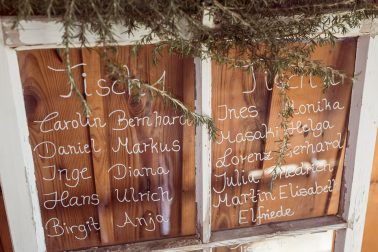 Tisch 1
Carolin Bernhard
Daniel Markus
Inge Diana
Hans Ulrich
Birgit Anja
Tisch
Ines Monika
Masaki Helga
Lorenz Gerhard
Julia Friedrich
Martin Elisabeth
Elfriede